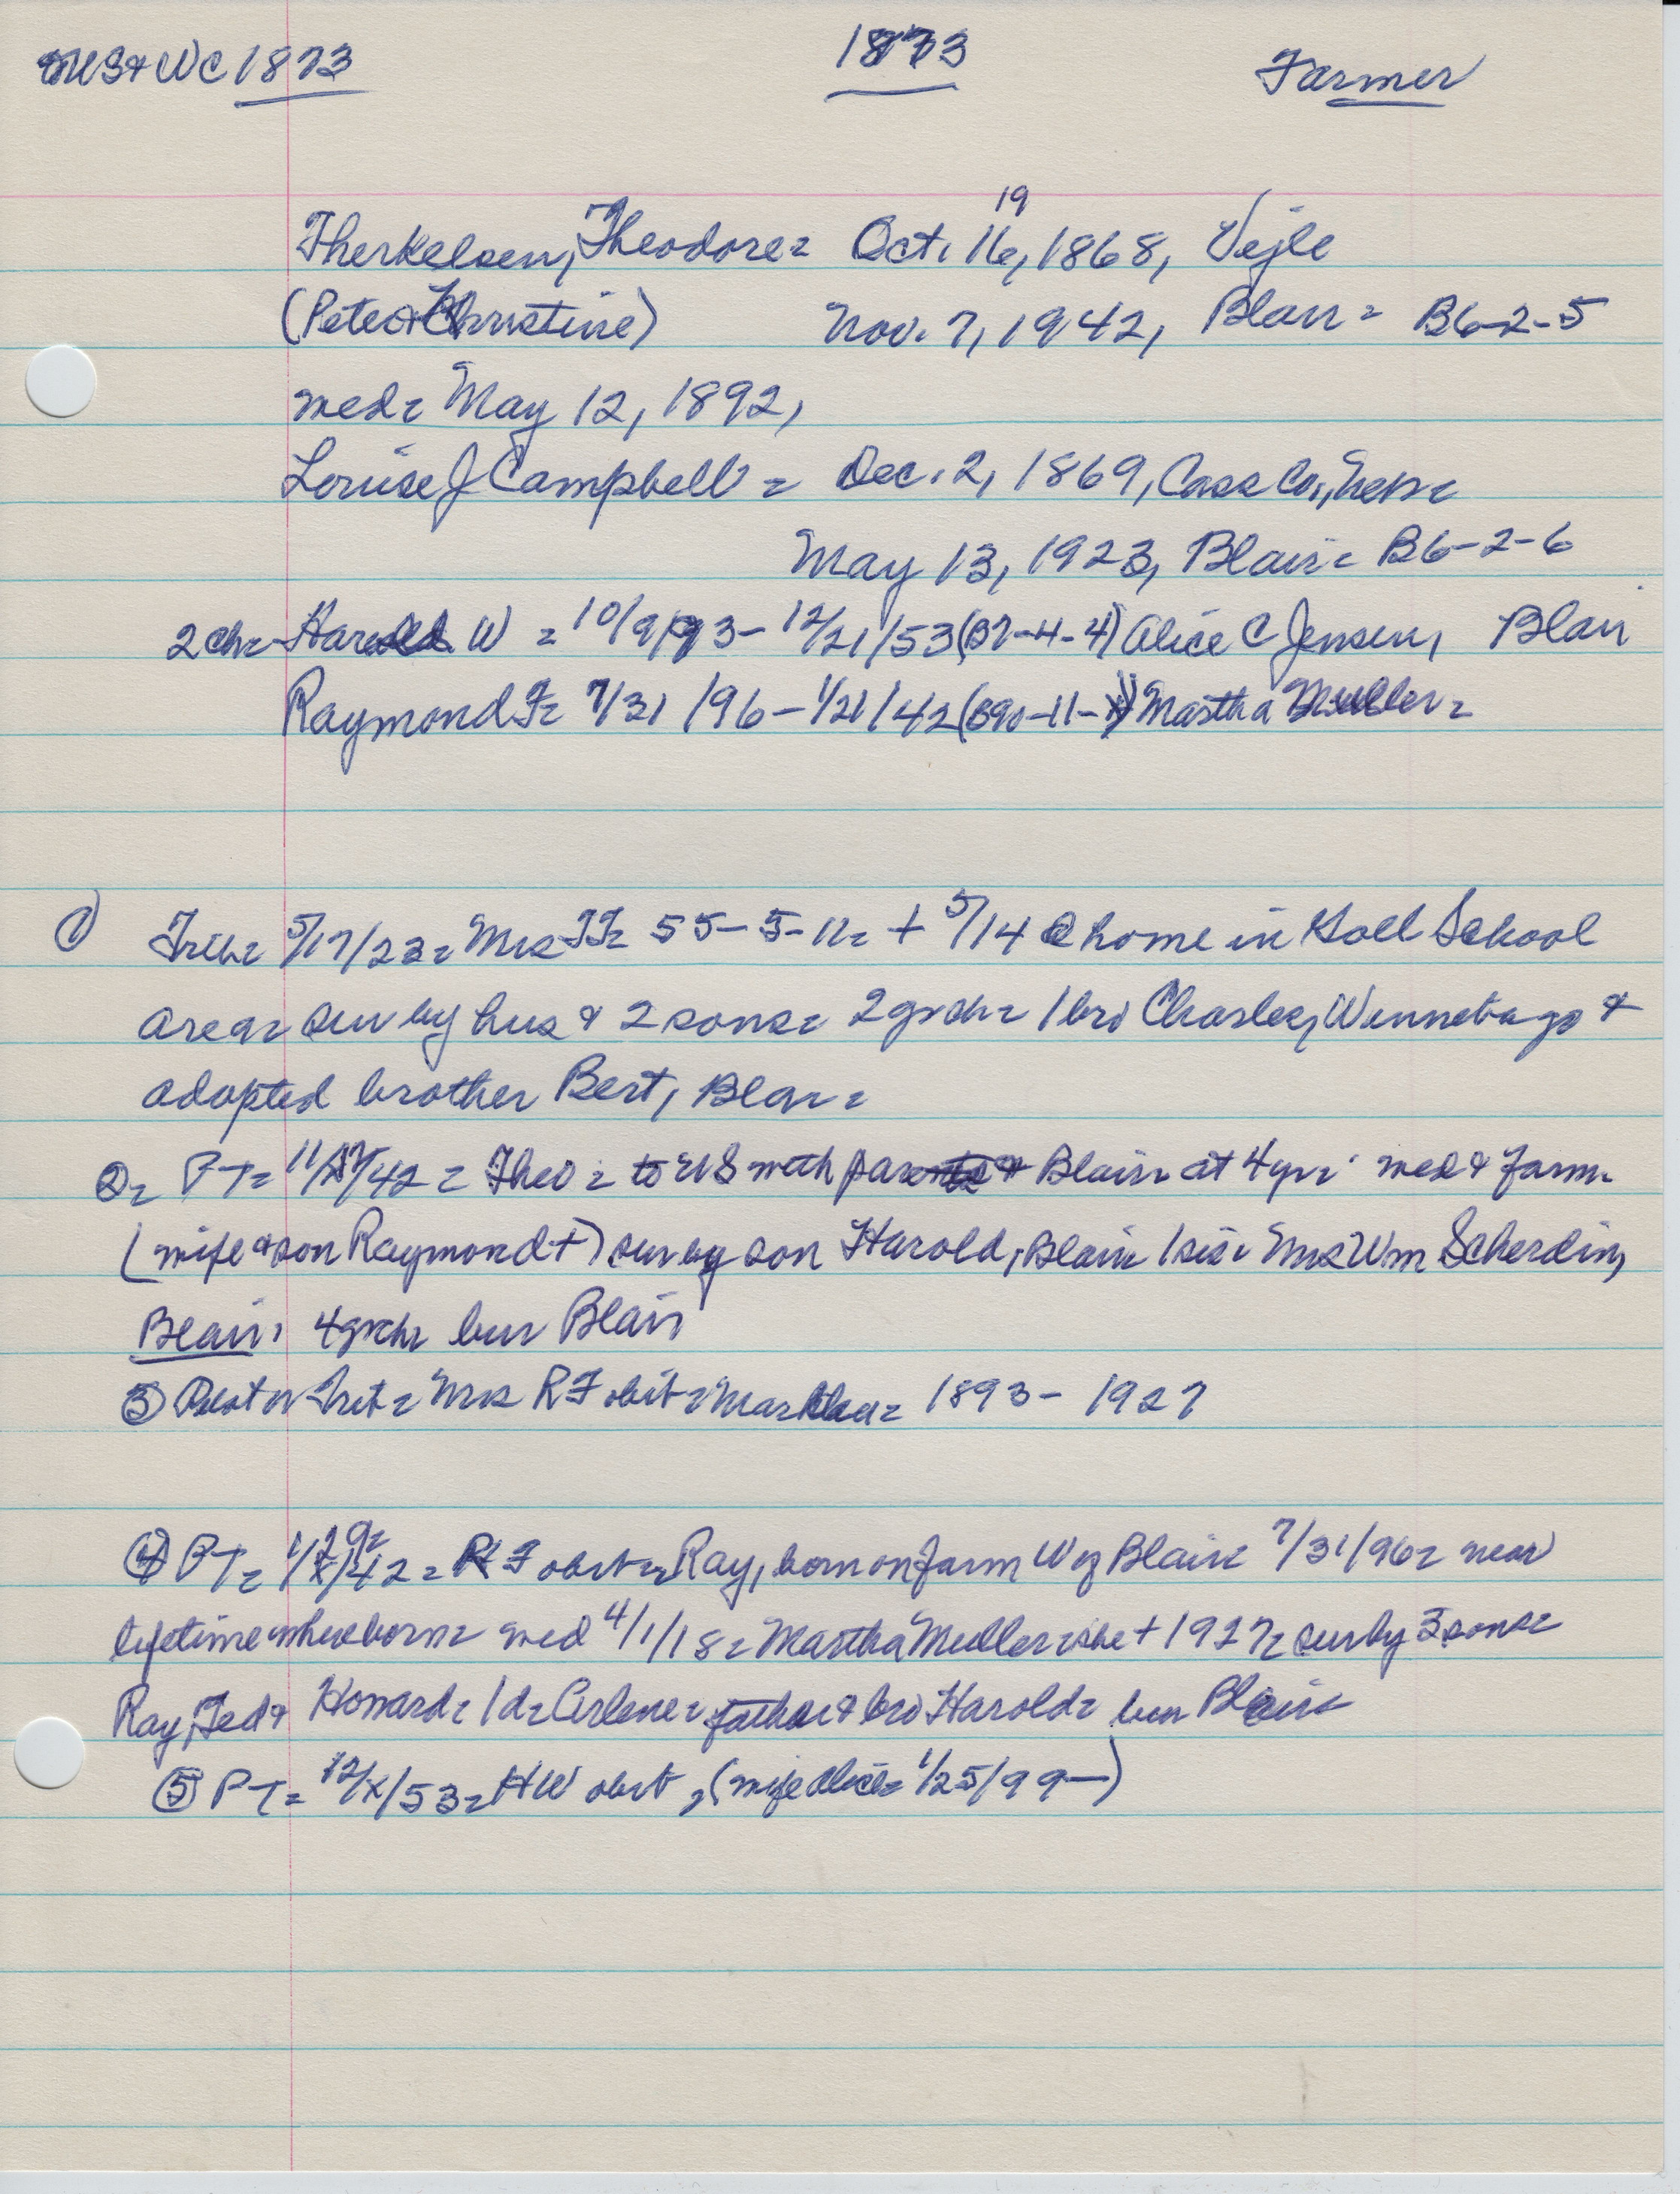 US & WC 1873 1873 Farmer
19
Therkelsen, Theodore = Oct. 16, 1868, Vejle
(Peter & Christine) Nov. 7, 1942, Blair = B6-2-5
med = May 12, 1892,
Louise J Campbell = Dec. 2, 1869, Cass Co., Nebr =
May 13, 1923, Blair = B6-2-6
2 ch = Harold W = 10/9/93 - 12/21/53 (B7-4-4) Alice C Jensen, Blair
Raymond F = 7/31/96 - 1/21/42 (B90-11- ) Martha Mueller =
① Trib = 5/17/23 = Mrs TT = 55-5-11 = + 5/14 @ home in Holl School
area = sur by hus & 2 sons = 2 grch = 1 bro Charles, Winnebago &
adopted brother Bert, Blair =
②= PT = 11/ /42 = Theo = to US with parents & Blair = at 4 yr = med & farm =
(wife & son Raymond +) sur by son Harold, Blair 1 sis = Mrs Wm Scherdin,
Blair, 4 grch bur Blair
③ = Mrs R T obit = Martha = 1893 - 1927
④ PT = 1/29/42 = R T obit = Ray, born on farm W of Blair 7/31/96 = near
lifetime where born = med 4/1/18 = Martha Mueller = she + 1927 = sur by 3 sons =
Ray, Ted & Howard = 1 d = Arlene = father & bro Harold = bur Blair
⑤ PT = 12/x/53 = HW obit, (wife Alice = 1/25/99 -)